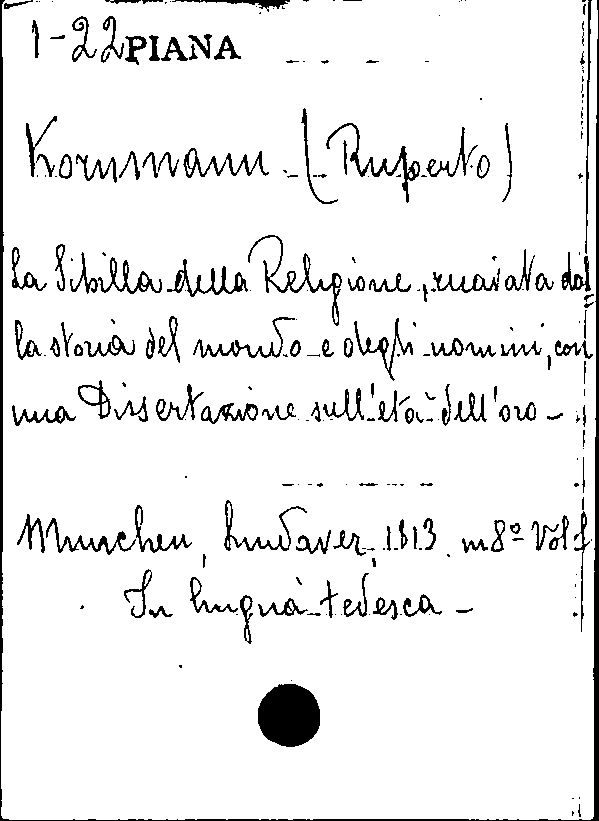 1-22 PIANA
Kornmann (Ruperto)
La Sibilla della Religione, ricavata dal=
la storia del mondo e degli uomini, con
una Dissertazione sull'età dell'oro -
Munchen, Lindaver, 1813 in 8º Vol 1
In lingua tedesca -